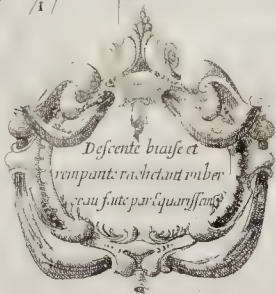 1
Descente biaise et
rempante rachetant un ber
ceau faite par Equarissem.t